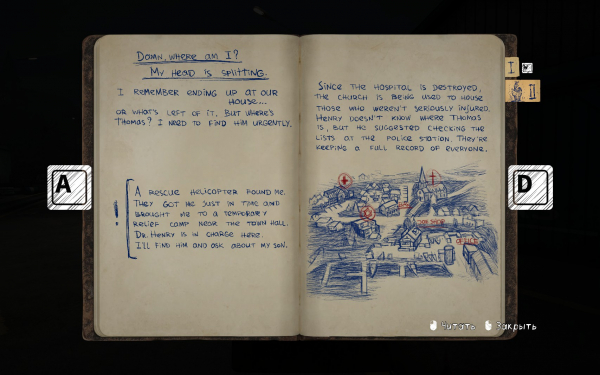 Damn, where am I?
My head is splitting.
I remember ending up at our
house...
or what's left of it. But where's
Thomas? I need to find him urgently.
! A rescue helicopter found me.
They got me just in time and
brought me to a temporary
relief camp near the town hall.
Dr. Henry is in charge here.
I'll find him and ask about my son.
Since the hospital is destroyed,
the church is being used to house
those who weren't seriously injured.
Henry doesn't know where Thomas
is, but he suggested checking the
lists at the police station. They're
keeping a full record of everyone.
A
D
I
Читать
Закрыть